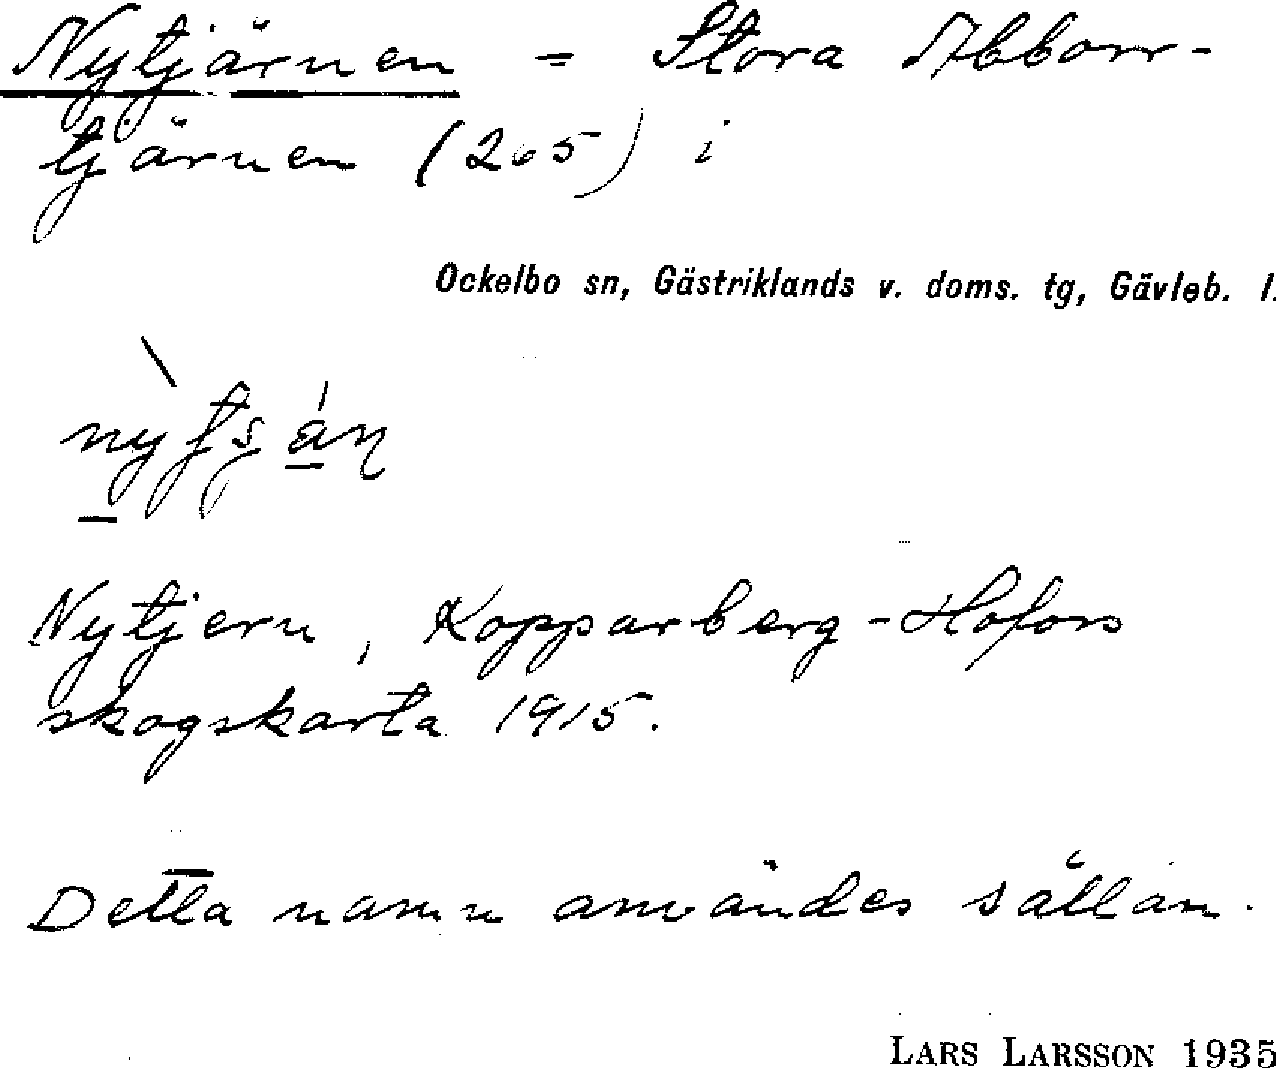 Nytjärnen = Stora Abborr-
tjärnen (265) i
Ockelbo sn, Gästriklands v. doms. tg, Gävleb. l.
Nytjern, Kopparberg-Hofors
skogskarta 1915.
Detta namn användes sällan.
LARS LARSSON 1935